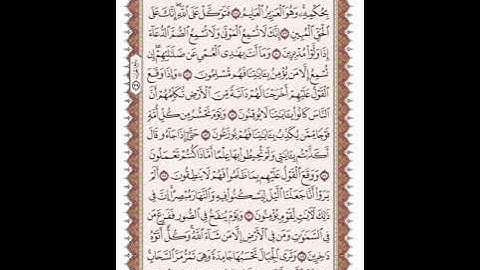 بِحُكْمِهِۦ وَهُوَ ٱلْعَزِيزُ ٱلْعَلِيمُ ۝ فَتَوَكَّلْ عَلَى ٱللَّهِ إِنَّكَ عَلَى
ٱلْحَقِّ ٱلْمُبِينِ ۝ إِنَّكَ لَا تُسْمِعُ ٱلْمَوْتَىٰ وَلَا تُسْمِعُ ٱلصُّمَّ ٱلدُّعَآءَ
إِذَا وَلَّوْا۟ مُدْبِرِينَ ۝ وَمَآ أَنتَ بِهَٰدِى ٱلْعُمْىِ عَن ضَلَٰلَتِهِمْ إِن
تُسْمِعُ إِلَّا مَن يُؤْمِنُ بِـَٔايَٰتِنَا فَهُم مُّسْلِمُونَ ۝ وَإِذَا وَقَعَ
ٱلْقَوْلُ عَلَيْهِمْ أَخْرَجْنَا لَهُمْ دَآبَّةً مِّنَ ٱلْأَرْضِ تُكَلِّمُهُمْ أَنَّ
ٱلنَّاسَ كَانُوا۟ بِـَٔايَٰتِنَا لَا يُوقِنُونَ ۝ وَيَوْمَ نَحْشُرُ مِن كُلِّ أُمَّةٍ
فَوْجًا مِّمَّن يُكَذِّبُ بِـَٔايَٰتِنَا فَهُمْ يُوزَعُونَ ۝ حَتَّىٰٓ إِذَا جَآءُو قَالَ
أَكَذَّبْتُم بِـَٔايَٰتِى وَلَمْ تُحِيطُوا۟ بِهَا عِلْمًا أَمَّاذَا كُنتُمْ تَعْمَلُونَ
۝ وَوَقَعَ ٱلْقَوْلُ عَلَيْهِم بِمَا ظَلَمُوا۟ فَهُمْ لَا يَنطِقُونَ ۝ أَلَمْ
يَرَوْا۟ أَنَّا جَعَلْنَا ٱلَّيْلَ لِيَسْكُنُوا۟ فِيهِ وَٱلنَّهَارَ مُبْصِرًا إِنَّ فِى
ذَٰلِكَ لَـَٔايَٰتٍ لِّقَوْمٍ يُؤْمِنُونَ ۝ وَيَوْمَ يُنفَخُ فِى ٱلصُّورِ فَفَزِعَ مَن
فِى ٱلسَّمَٰوَٰتِ وَمَن فِى ٱلْأَرْضِ إِلَّا مَن شَآءَ ٱللَّهُ وَكُلٌّ أَتَوْهُ
دَٰخِرِينَ ۝ وَتَرَى ٱلْجِبَالَ تَحْسَبُهَا جَامِدَةً وَهِىَ تَمُرُّ مَرَّ ٱلسَّحَابِ